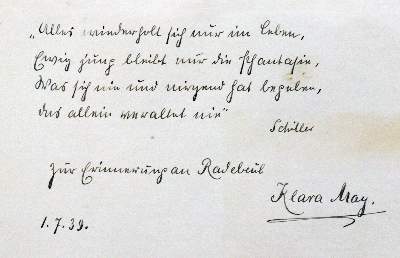 „Alles wiederholt sich nur im Leben,
Ewig jung bleibt nur die Phantasie,
Was sich nie und nirgend hat begeben,
das allein veraltet nie"
Schiller
Zur Erinnerung an Radebeul
Klara May.
1.7.39.